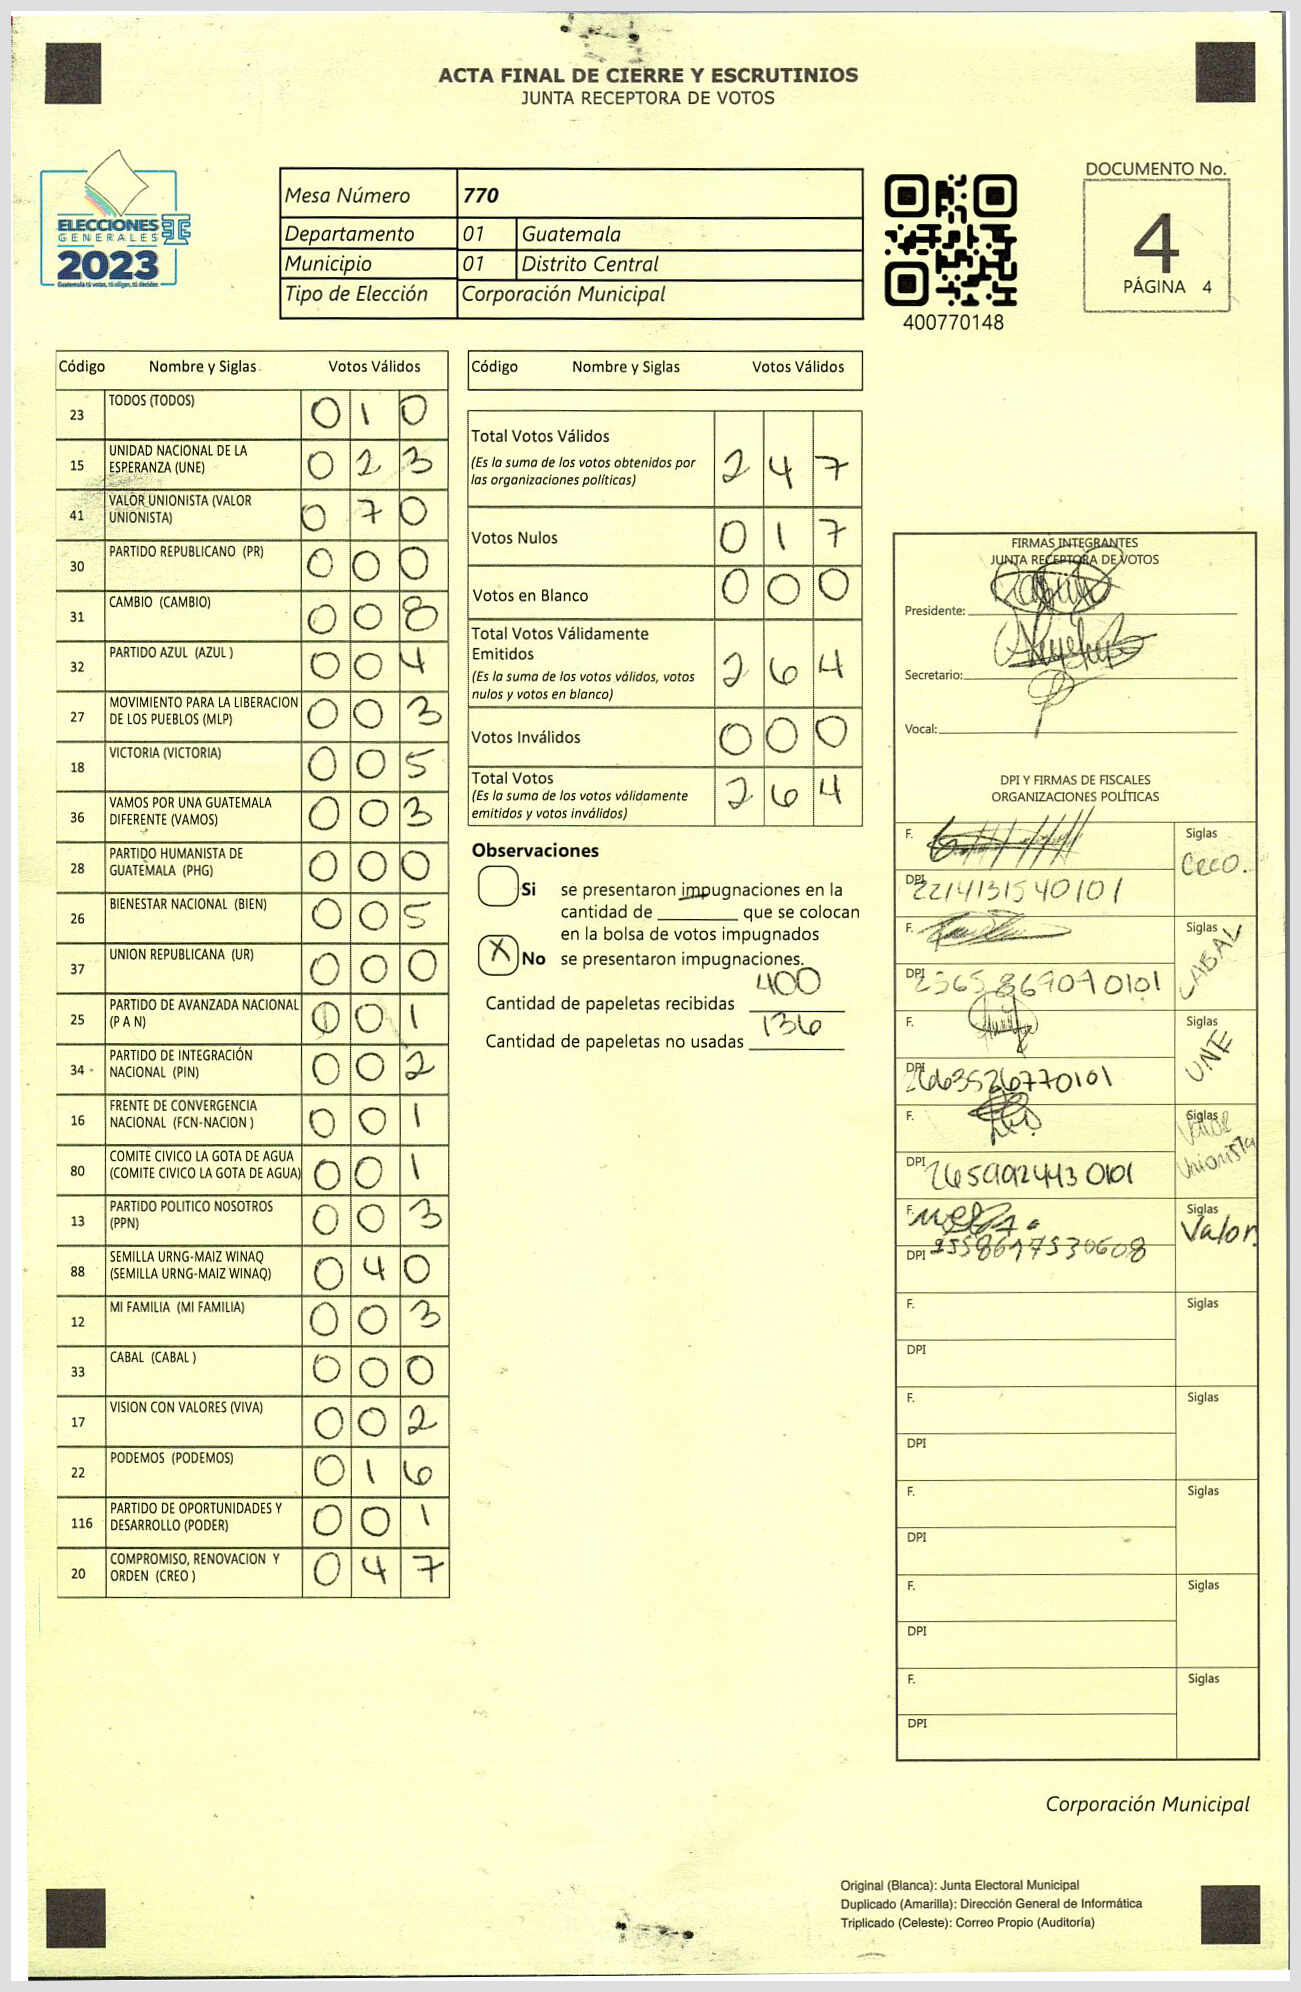 ACTA FINAL DE CIERRE Y ESCRUTINIOS
JUNTA RECEPTORA DE VOTOS
ELECCIONES
GENERALES
2023
Guatemala tú votas, tú eliges, tú decides
Mesa Número 770
Departamento 01 Guatemala
Municipio 01 Distrito Central
Tipo de Elección Corporación Municipal
400770148
DOCUMENTO No.
4
PÁGINA 4
Código Nombre y Siglas Votos Válidos
23 TODOS (TODOS) 0 1 0
15 UNIDAD NACIONAL DE LA
ESPERANZA (UNE) 0 2 3
41 VALOR UNIONISTA (VALOR
UNIONISTA) 0 7 0
30 PARTIDO REPUBLICANO (PR) 0 0 0
31 CAMBIO (CAMBIO) 0 0 8
32 PARTIDO AZUL (AZUL ) 0 0 4
27 MOVIMIENTO PARA LA LIBERACION
DE LOS PUEBLOS (MLP) 0 0 3
18 VICTORIA (VICTORIA) 0 0 5
36 VAMOS POR UNA GUATEMALA
DIFERENTE (VAMOS) 0 0 3
28 PARTIDO HUMANISTA DE
GUATEMALA (PHG) 0 0 0
26 BIENESTAR NACIONAL (BIEN) 0 0 5
37 UNION REPUBLICANA (UR) 0 0 0
25 PARTIDO DE AVANZADA NACIONAL
(P A N) 0 0 1
34 PARTIDO DE INTEGRACIÓN
NACIONAL (PIN) 0 0 2
16 FRENTE DE CONVERGENCIA
NACIONAL (FCN-NACION ) 0 0 1
80 COMITE CIVICO LA GOTA DE AGUA
(COMITE CIVICO LA GOTA DE AGUA) 0 0 1
13 PARTIDO POLITICO NOSOTROS
(PPN) 0 0 3
88 SEMILLA URNG-MAIZ WINAQ
(SEMILLA URNG-MAIZ WINAQ) 0 4 0
12 MI FAMILIA (MI FAMILIA) 0 0 3
33 CABAL (CABAL ) 0 0 0
17 VISION CON VALORES (VIVA) 0 0 2
22 PODEMOS (PODEMOS) 0 1 6
116 PARTIDO DE OPORTUNIDADES Y
DESARROLLO (PODER) 0 0 1
20 COMPROMISO, RENOVACION Y
ORDEN (CREO ) 0 4 7
Código Nombre y Siglas Votos Válidos
Total Votos Válidos 2 4 7
(Es la suma de los votos obtenidos por
las organizaciones políticas)
Votos Nulos 0 1 7
Votos en Blanco 0 0 0
Total Votos Válidamente
Emitidos 2 6 4
(Es la suma de los votos válidos, votos
nulos y votos en blanco)
Votos Inválidos 0 0 0
Total Votos 2 6 4
(Es la suma de los votos válidamente
emitidos y votos inválidos)
Observaciones
Si se presentaron impugnaciones en la
cantidad de ________ que se colocan
en la bolsa de votos impugnados
X No se presentaron impugnaciones.
Cantidad de papeletas recibidas 400
Cantidad de papeletas no usadas 136
FIRMAS INTEGRANTES
JUNTA RECEPTORA DE VOTOS
Presidente:
Secretario:
Vocal:
DPI Y FIRMAS DE FISCALES
ORGANIZACIONES POLÍTICAS
F. Siglas
Creo.
DPI 2214131540101
F. Siglas
CABAL
DPI
F. Siglas
UNE
DPI 2663526770101
F. Siglas
Valor
Unionista
DPI
F. Siglas
Valor
DPI
F. Siglas
DPI
F. Siglas
DPI
F. Siglas
DPI
F. Siglas
DPI
F. Siglas
DPI
Corporación Municipal
Original (Blanca): Junta Electoral Municipal
Duplicado (Amarilla): Dirección General de Informática
Triplicado (Celeste): Correo Propio (Auditoría)